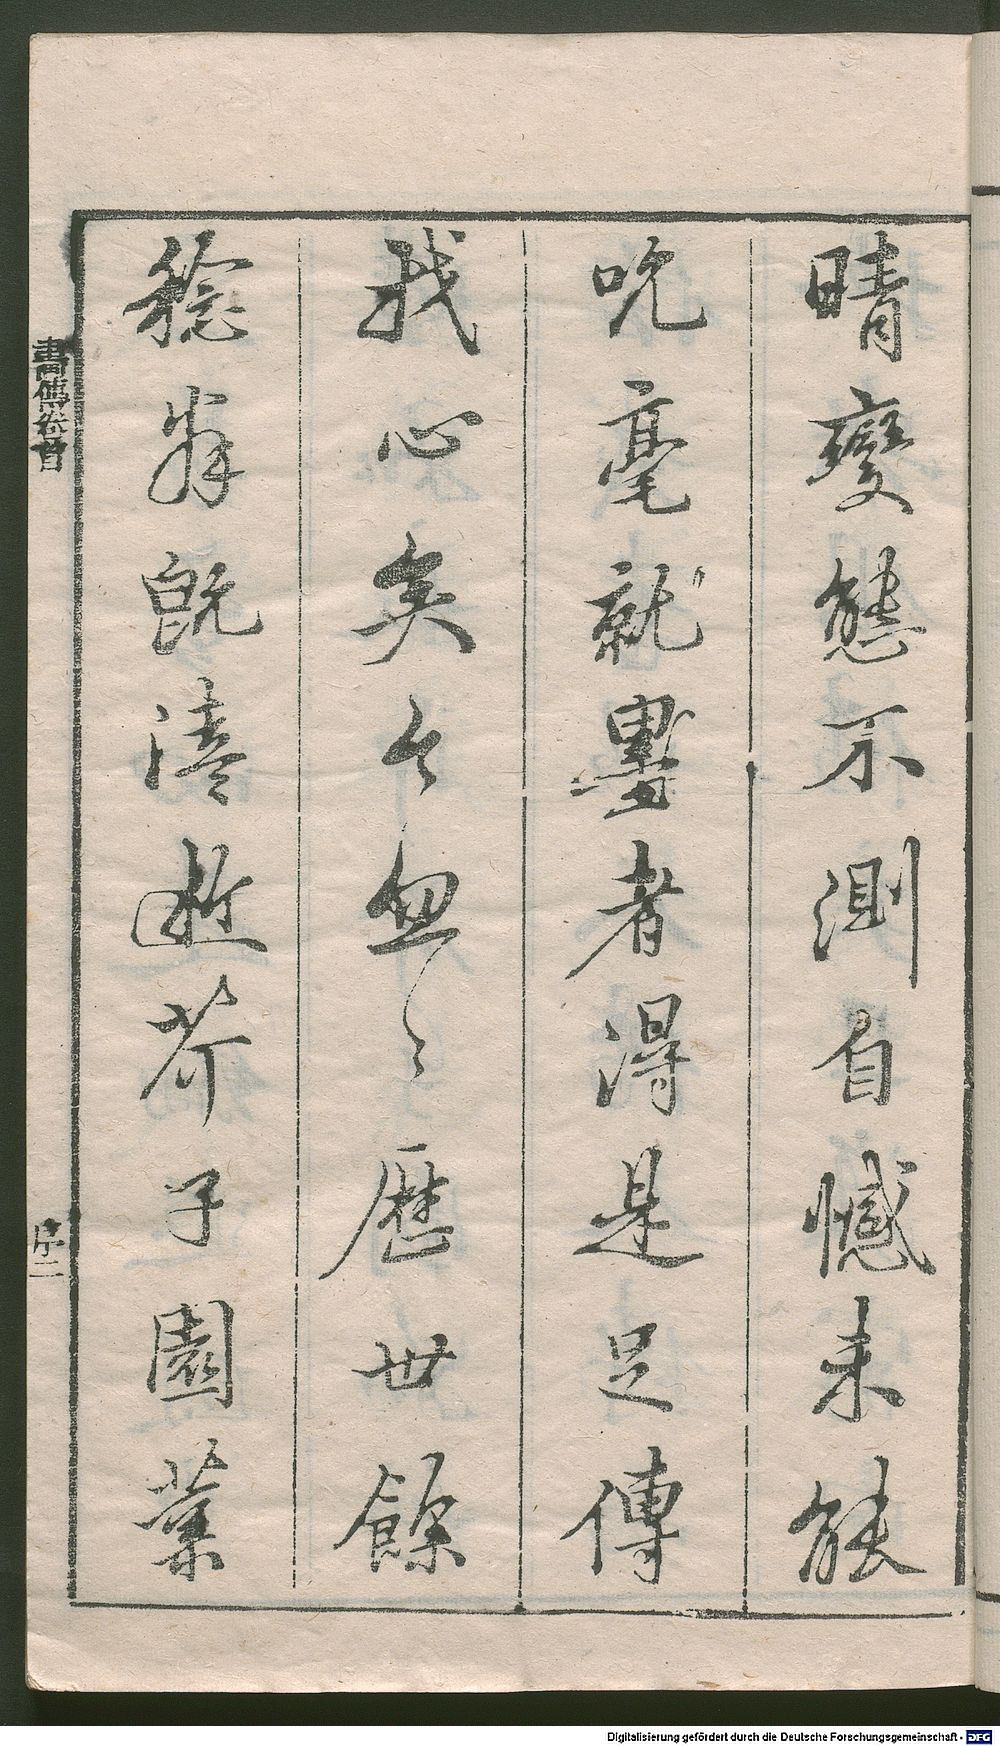 晴變態不測自憾未能
吮毫就墨者得是足傳
我心矣今忽〻歷世餘
稔翁既淒逝芥子園業
畫傳卷首
序二
Digitalisierung gefördert durch die Deutsche Forschungsgemeinschaft - DFG